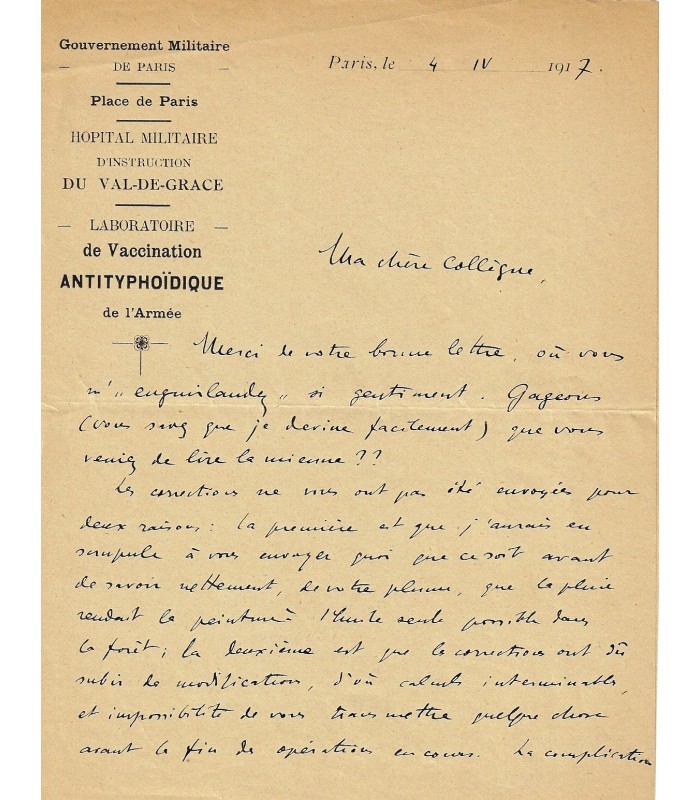 Gouvernement Militaire
DE PARIS
Place de Paris
HOPITAL MILITAIRE
D'INSTRUCTION
DU VAL-DE-GRACE
LABORATOIRE
de Vaccination
ANTITYPHOÏDIQUE
de l'Armée
Paris, le 4 IV 1917.
Ma chère Collègue,
Merci de votre bonne lettre, où vous
m'"enguirlandez" si gentiment. Gageons
(vous savez que je devine facilement) que vous
veniez de lire la mienne ??
Les corrections ne vous ont pas été envoyées pour
deux raisons : la première est que j'aurais eu
scrupule à vous envoyer quoi que ce soit avant
de savoir nettement, de votre plume, que la pluie
rendait la peinture à l'huile seule possible dans
la forêt ; la deuxième est que les corrections ont dû
subir des modifications, d'où calculs interminables,
et impossibilité de vous transmettre quelque chose
avant la fin des opérations en cours. La complication